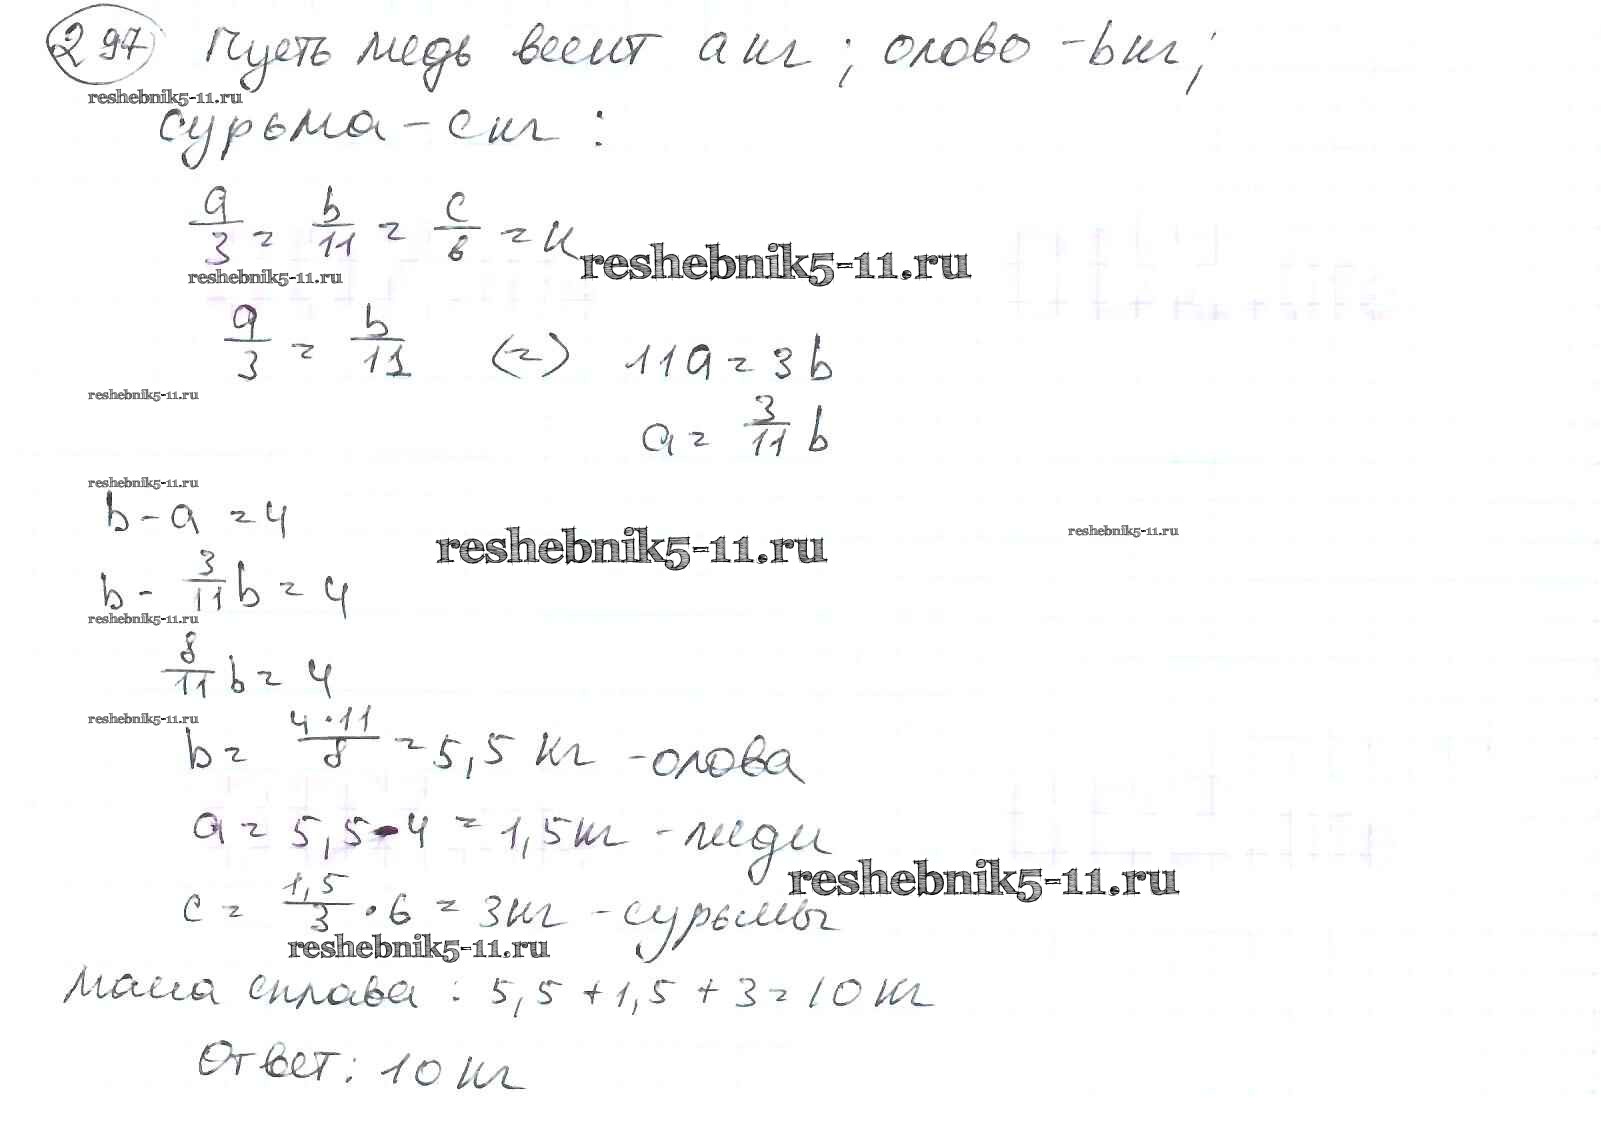 297 Пусть медь весит a кг; олово - b кг;
reshebnik5-11.ru
сурьма - c кг:
a/3 = b/11 = c/6 = к
reshebnik5-11.ru
reshebnik5-11.ru
a/3 = b/11 (=) 11a = 3b
reshebnik5-11.ru
a = 3/11 b
reshebnik5-11.ru
b - a = 4
reshebnik5-11.ru
reshebnik5-11.ru
b - 3/11 b = 4
reshebnik5-11.ru
8/11 b = 4
reshebnik5-11.ru
b = 4·11/8 = 5,5 кг - олова
a = 5,5 - 4 = 1,5 кг - меди
reshebnik5-11.ru
c = 1,5/3 · 6 = 3 кг - сурьмы
reshebnik5-11.ru
Масса сплава: 5,5 + 1,5 + 3 = 10 кг
Ответ: 10 кг